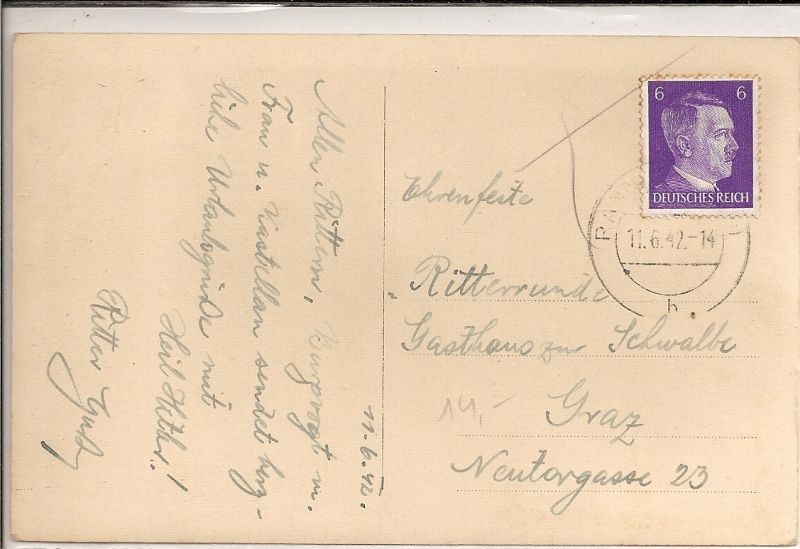 11.6.42.
Allen Rittern, Burgvogt m.
Frau u. Kastellan sendet herz-
liche Urlaubsgrüße mit
Heil Hitler!
Ritter Gust
6 6
DEUTSCHES REICH
11.6.42.-14
b
Ehrenfeste
"Ritterrunde
Gasthaus zur Schwalbe
14,-
Graz
Neutorgasse 23